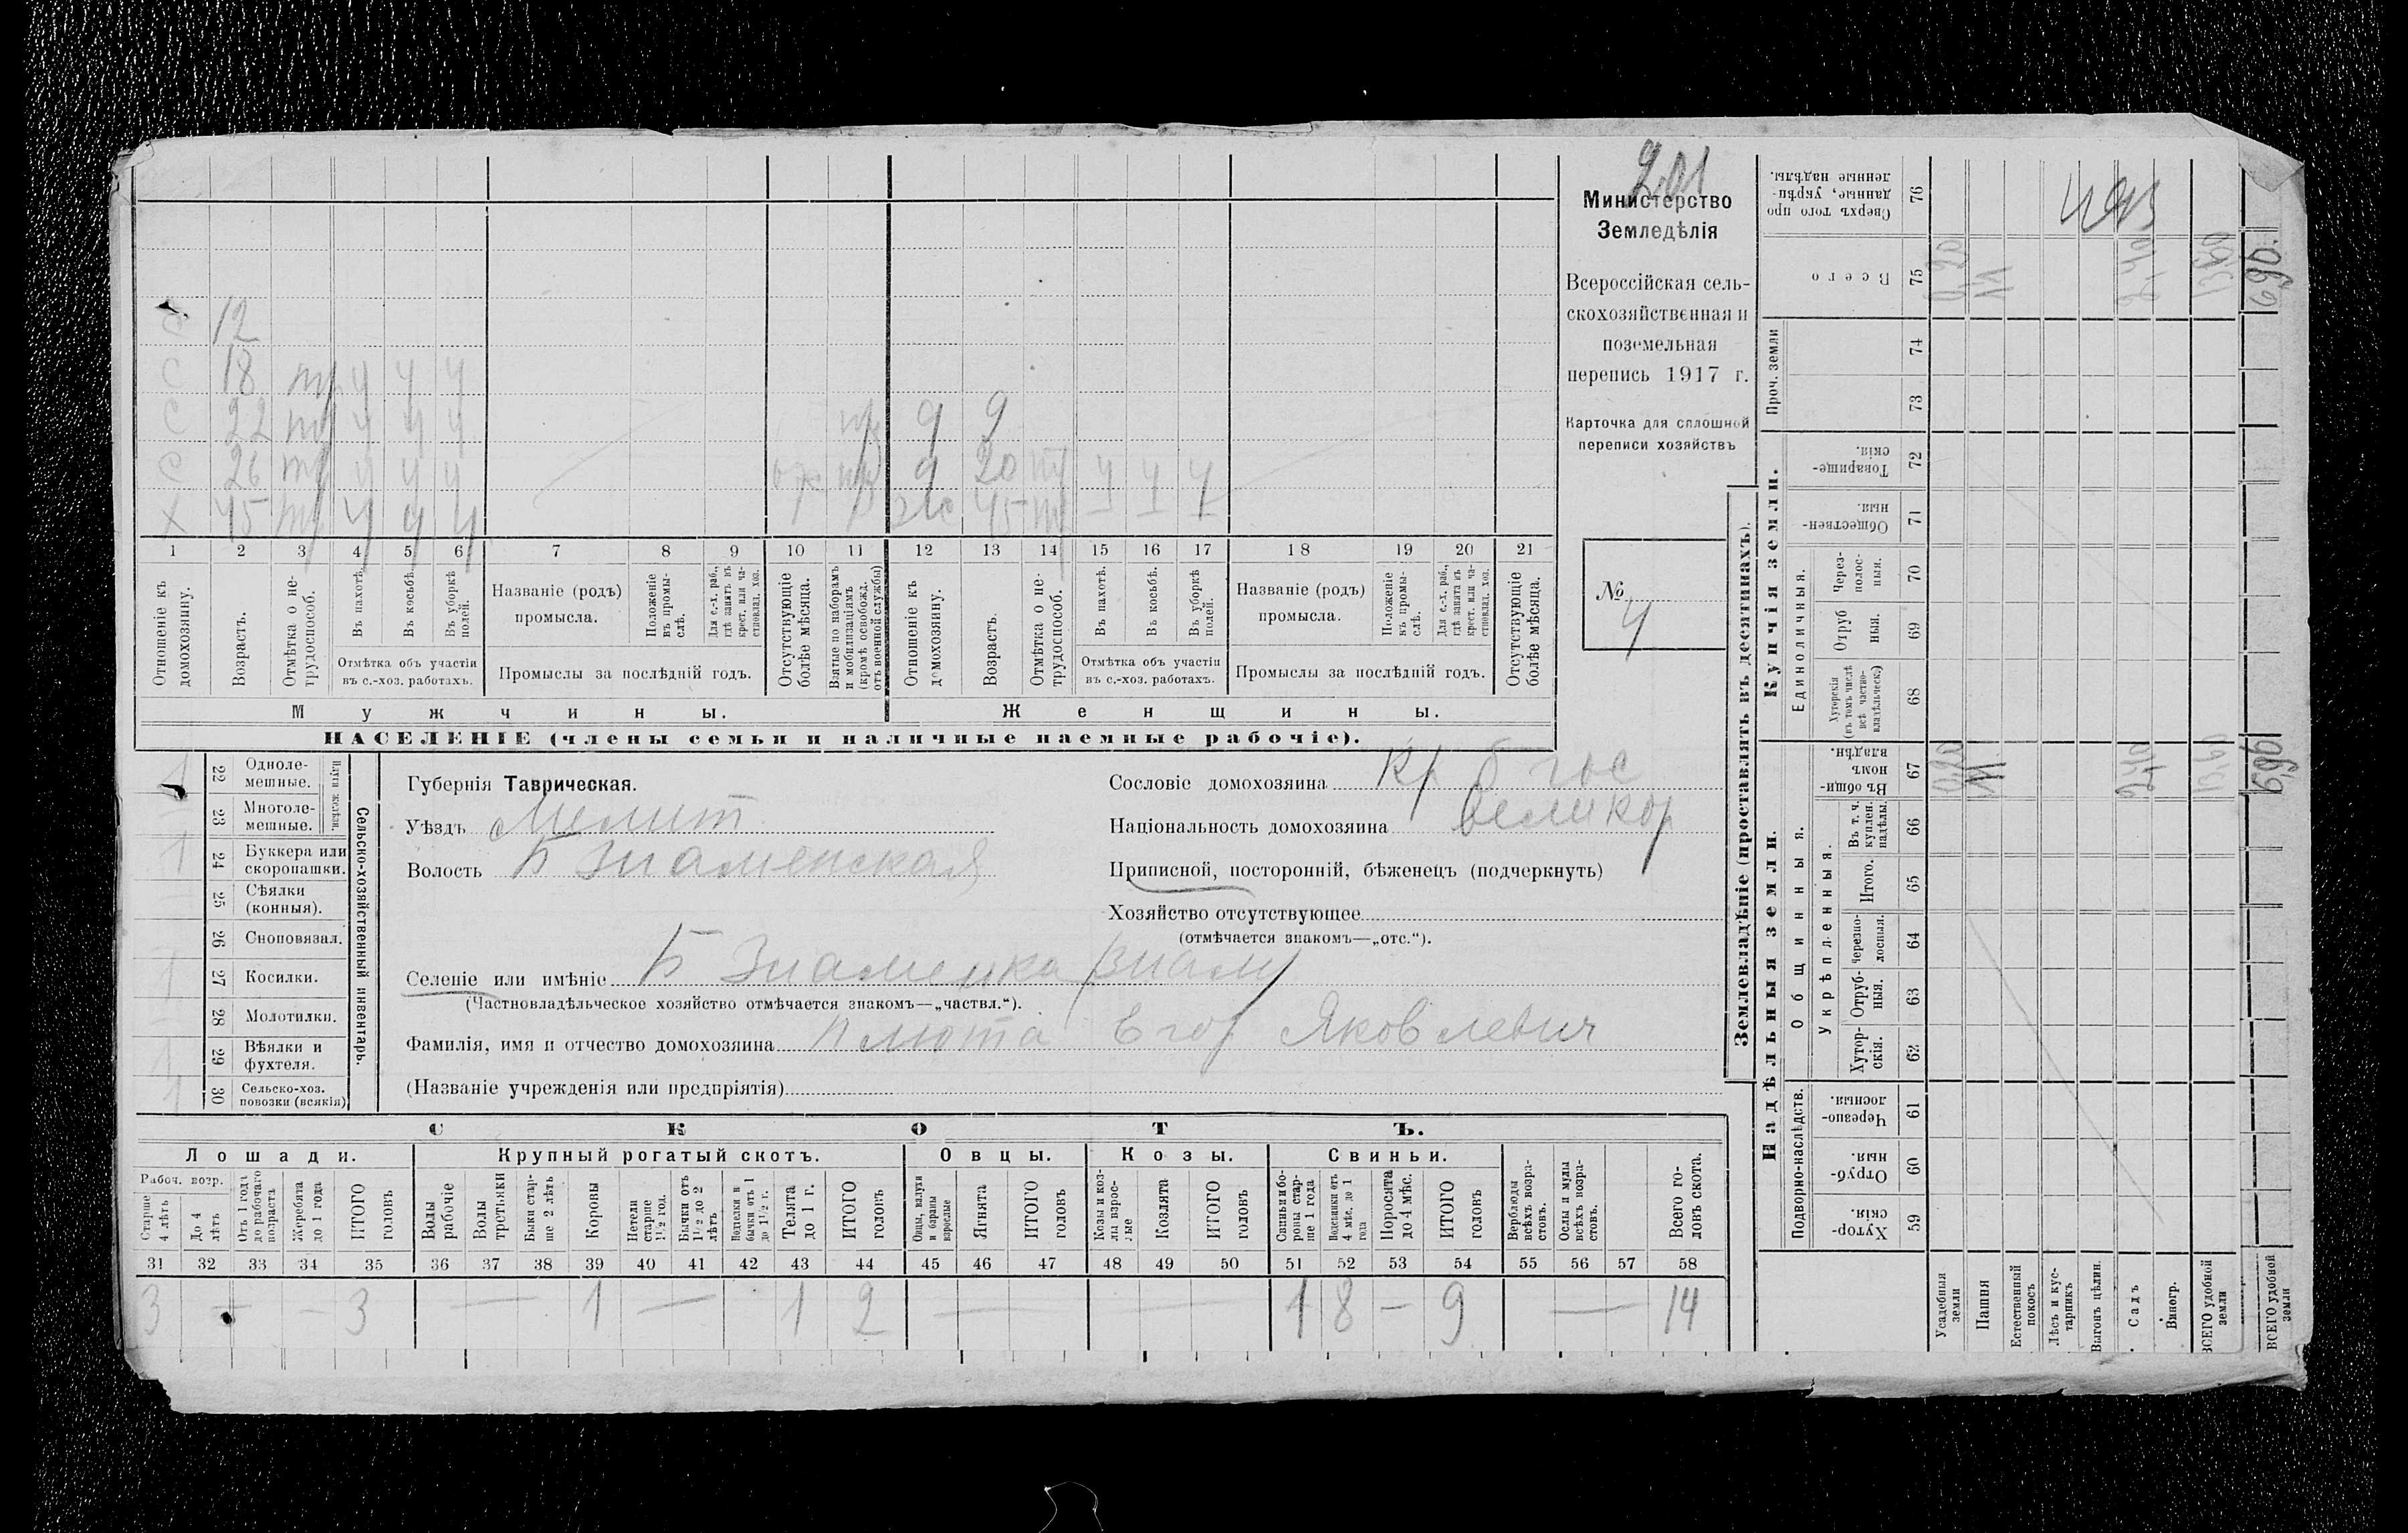 201
Министерство
Земледѣлія
Всероссійская сель-
скохозяйственная и
поземельная
перепись 1917 г.
Карточка для сплошной
переписи хозяйствъ
№
4
С 12
С 18 тр у у у
С 22 тр у у у
С 26 тр у у у
Х 45 тр у у у
9
20
45
1 2 3 4 5 6 7 8 9 10 11 12 13 14 15 16 17 18 19 20 21
Отношеніе къ домохозяину.
Возрастъ.
Отмѣтка о не-трудоспособ.
Въ пахотѣ.
Въ косьбѣ.
Въ уборкѣ полей.
Названіе (родъ) промысла.
Положеніе въ промы-слѣ.
Для с.-х. раб., гдѣ занятъ въ крест. или ча-стновлад. хоз.
Отсутствующіе болѣе мѣсяца.
Взятые по наборамъ и мобилизаціямъ (кромѣ освобожд. отъ военной службы)
Отношеніе къ домохозяину.
Возрастъ.
Отмѣтка о не-трудоспособ.
Въ пахотѣ.
Въ косьбѣ.
Въ уборкѣ полей.
Названіе (родъ) промысла.
Положеніе въ промы-слѣ.
Для с.-х. раб., гдѣ занята въ крест. или ча-стновлад. хоз.
Отсутствующіе болѣе мѣсяца.
Отмѣтка объ участіи въ с.-хоз. работахъ.
Промыслы за послѣдній годъ.
Отмѣтка объ участіи въ с.-хоз. работахъ.
Промыслы за послѣдній годъ.
Мужчины.
Женщины.
НАСЕЛЕНІЕ (члены семьи и наличные наемные рабочіе).
1 22 Одноле-мешные.
23 Многоле-мешные.
Плуги желѣзн.
1 24 Буккера или скоропашки.
25 Сѣялки (конныя).
26 Сноповязал.
1 27 Косилки.
28 Молотилки.
1 29 Вѣялки и фухтеля.
1 30 Сельско-хоз. повозки (всякія)
Сельско-хозяйственный инвентарь.
Губернія Таврическая.
Уѣздъ Мелит
Волость Б Знаменская
Селеніе или имѣніе Б Знаменка Знам
(Частновладѣльческое хозяйство отмѣчается знакомъ—„частвл.“).
Фамилія, имя и отчество домохозяина Плюта Егор Яковлевич
(Названіе учрежденія или предпріятія)
Сословіе домохозяина Кр б гос
Національность домохозяина великор
Приписной, посторонній, бѣженецъ (подчеркнуть)
Хозяйство отсутствующее
(отмѣчается знакомъ—„отс.“).
СКОТЪ.
Лошади. Крупный рогатый скотъ. Овцы. Козы. Свиньи.
Рабоч. возр.
Старше 4 лѣтъ
До 4 лѣтъ
Отъ 1 года до рабочаго возраста
Жеребята до 1 года
ИТОГО головъ
Волы рабочіе
Волы третьяки
Быки стар-ше 2 лѣтъ
Коровы
Нетели старше 1½ год.
Бычки отъ 1½ до 2 лѣтъ
Телята до 1 г.
ИТОГО головъ
Овцы, валухи и бараны взрослые
Ягнята
ИТОГО головъ
Козы и коз-лы взрос-лые
Козлята
ИТОГО головъ
Свиньи и бо-ровы стар-ше 1 года
Подсвинки отъ 4 мѣс. до 1 года
Поросята до 4 мѣс.
ИТОГО головъ
Верблюды всѣхъ возра-стовъ.
Ослы и мулы всѣхъ возра-стовъ.
Всего го-ловъ скота.
31 32 33 34 35 36 37 38 39 40 41 42 43 44 45 46 47 48 49 50 51 52 53 54 55 56 57 58
3 — — 3 — 1 — 1 2 — — 1 8 — 9 — 14
Землевладѣніе (проставлять въ десятинахъ).
Надѣльныя земли.
Купчія земли.
Проч. земли
Подворно-наслѣдств.
Общинныя.
Укрѣпленныя.
Единоличныя.
Сверхъ того про данные, укрѣп-ленные надѣлы. 76
Всего 75
74
73
Товарище-скія. 72
Обществен-ныя. 71
Через-полос-ныя. 70
Отруб ныя. 69
Хуторскія (въ томъ числѣ всѣ частно-владѣльческ.) 68
Въ общи-номъ владѣн. 67
Въ т. ч. куплен. надѣлы. 66
Итого. 65
Черезпо-лосныя. 64
Отруб-ныя. 63
Хутор-скія. 62
Черезпо-лосныя. 61
Отруб-ныя. 60
Хутор-скія. 59
Усадебныя земли
Пашня
Естественный покосъ
Лѣсъ и кус-тарникъ
Выгонъ цѣлин.
Садъ
Виногр.
ВСЕГО удобной земли
ВСЕГО удобной земли
0,20
11
2,40
13,60
690